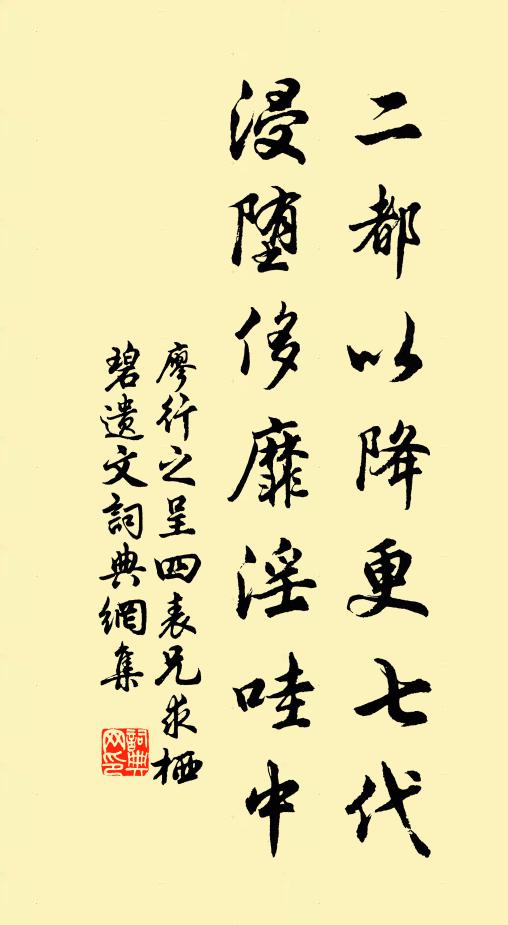 二都以降更七代
浸堕侈靡淫哇中
廖行之呈四表兄求栖
碧遗文詞典網集
詞典网印